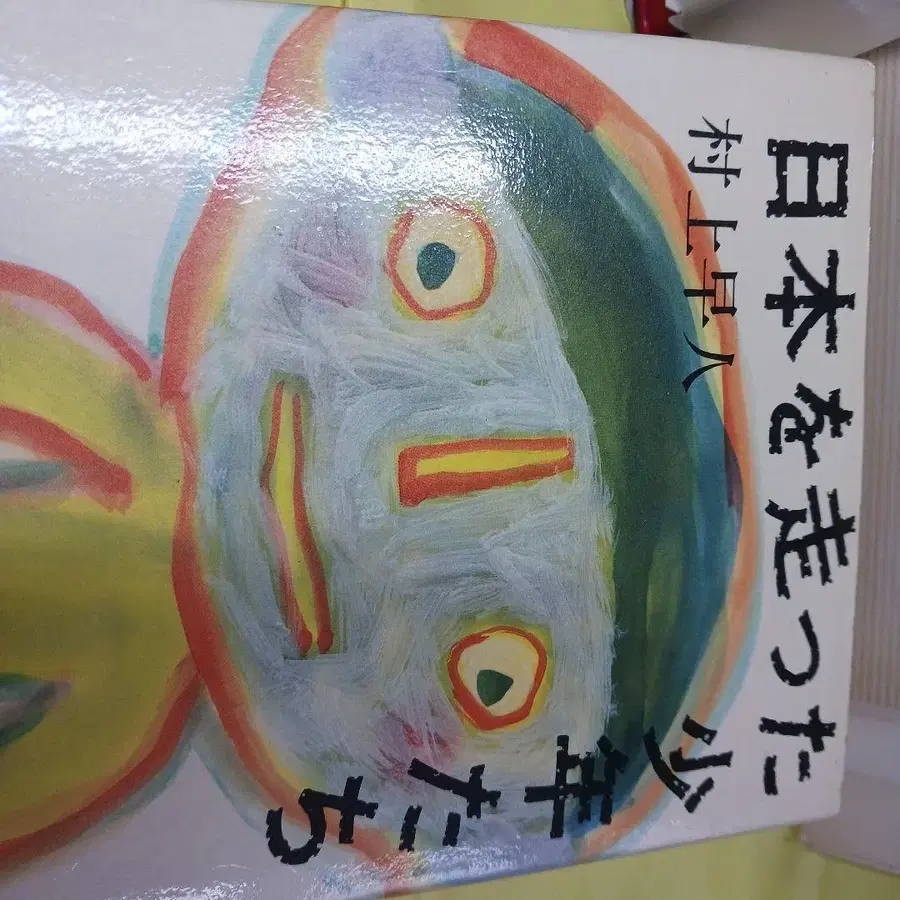 日本を走った
少年たち
村上早人